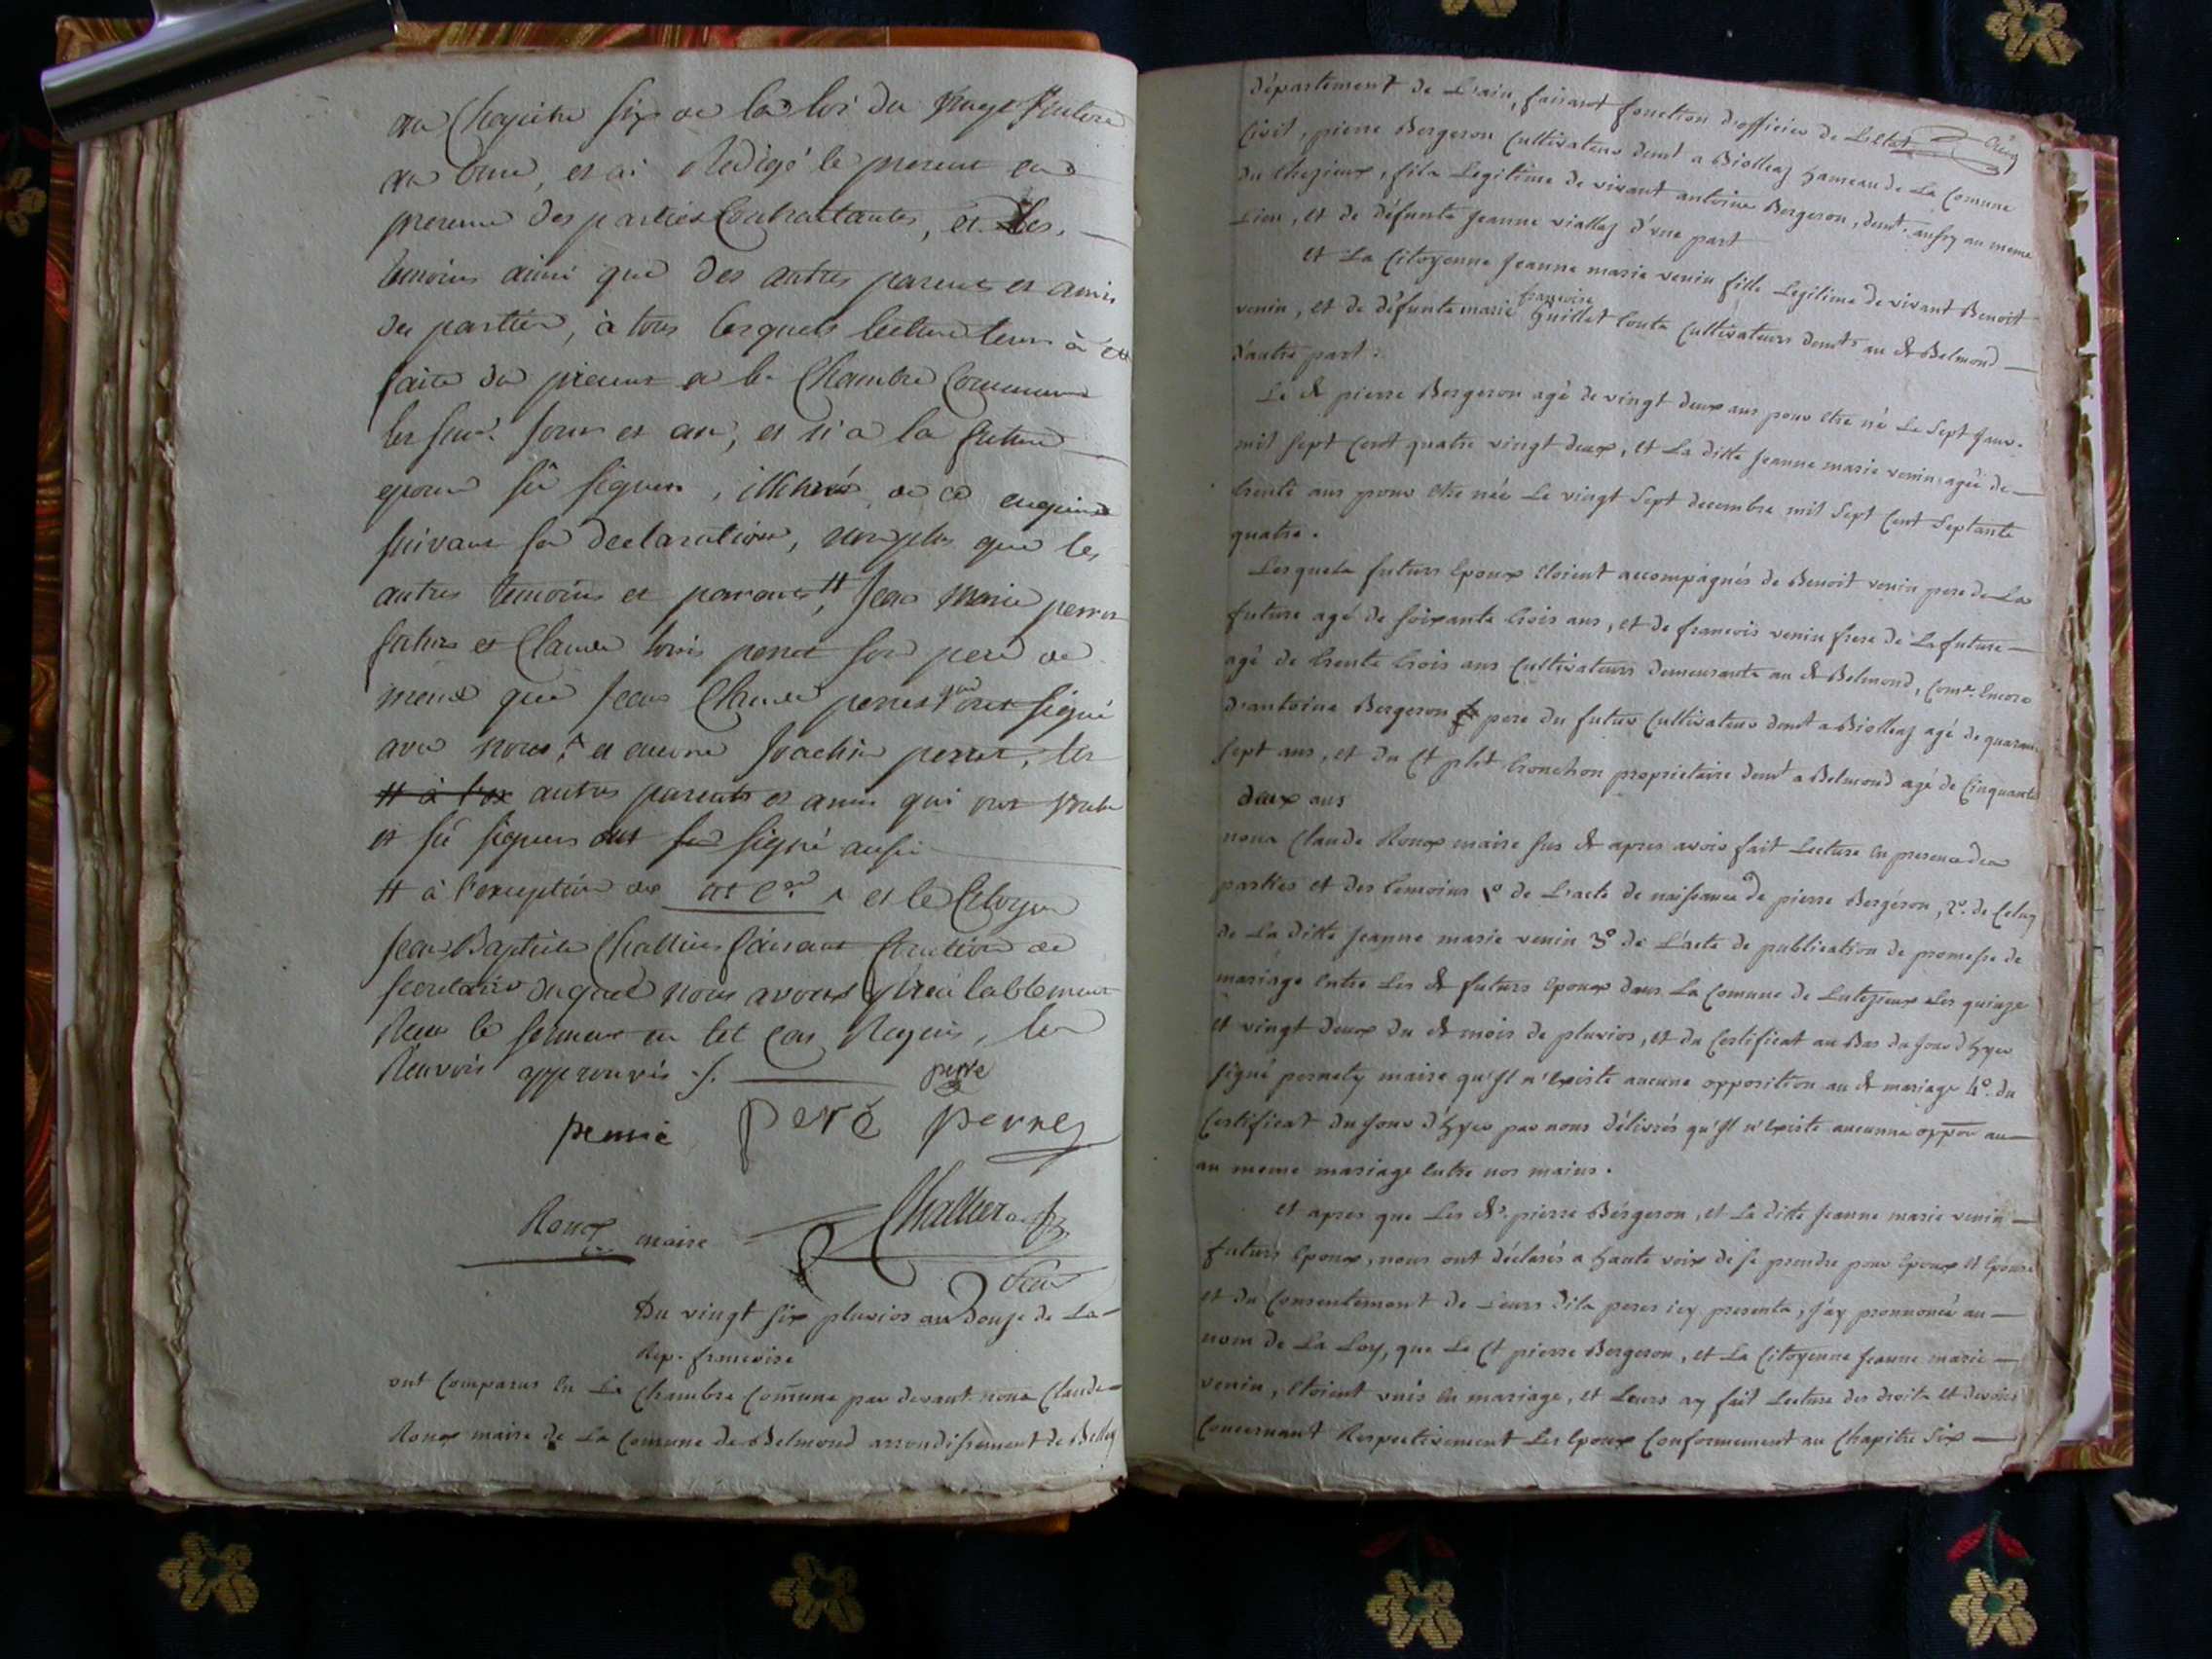 au Chapitre six de la loi du vingt Septembre
an onze, et ai Redigé le present en
presence des parties Contractantes, et des
temoins ainsi que des autres parents et amis
des parties, à tous lesquels lecture leur à été
faite du present a la Chambre Commune
les susd. jour et an, et n'a la future
epouse sû signer, illitérée de ce enquise
suivant sa declaration, non plus que les
autres temoins et parents # Jean Marie perret
futur et Claude louis perret son pere de
meme que Jean Claude perret ont signé
avec nous, et encore Joachin perret, les
# à l'ex autres parents et amis qui ont voulu
et sû signer ont signé aussi
# à l'exception de et le Citoyen
Jean Baptiste Challier faisant fonction de
secretaire duquel nous avons préalablement
Recu le serment en tel cas Requis, les
Renvois approuvés ./.
perré
perré peré perret
Roux maire Challier
Secr
Du vingt six pluvios an douze de La
Rep. francoise
ont Comparus en La Chambre Comune par devant nous Claude
Roux maire de La Comune de Belmond arrondissement de Belley
département de L'ain, faisant fonction d'officier de L'Etat
Civil, pierre Bergeron Cultivateur demt a Biolleaz hameau de La Comune
du Chezieux, fils Legitime de vivant antoine Bergeron, demt. aussy au meme
Lieu, et de défunte Jeanne viallaz d'une part
et La Citoyenne Jeanne marie venin fille Legitime de vivant Benoit
venin, et de défunte marie francoise huillet touts Cultivateurs demts au dt Belmond
d'autre part.
Le dt pierre Bergeron agé de vingt deux ans pour etre né Le sept janv.
mil sept Cent quatre vingt deux, et La ditte Jeanne marie venin agée de
trente ans pour etre née Le vingt sept decembre mil sept Cent septante
quatre.
Lesquels futurs Epoux Etoient accompagnés de Benoit venin pere de La
future agé de soixante trois ans, et de francois venin frere de La future
agé de trente trois ans Cultivateurs demeurants au dt Belmond, Come. Encore
d'antoine Bergeron pere du futur Cultivateur demt a Biolleaz agé de quarante
sept ans, et du Ct pht tronchon proprietaire demt a Belmond agé de Cinquante
deux ans
nous Claude Roux maire sus dt apres avoir fait Lecture En presence des
parties et des temoins 1o de L'acte de naissance de pierre Bergéron, 2o. de Celuy
de La ditte Jeanne marie venin 3o de L'acte de publication de promesse de
mariage Entre Les dt futurs Epoux dans La Comune de Lutezieux Les quinze
et vingt deux du dt mois de pluvios, et du Certificat au Bas du jour d'hyer
signé pernety maire qu'Il n'Existe aucune opposition au dt mariage 4o. du
Certificat du jour d'hyer par nous délivrés qu'Il n'Existe aucunne oppon au
au meme mariage Entre nos mains.
et apres que Les dts. pierre Bérgeron, et La ditte Jeanne marie venin
futurs Epoux, nous ont déclarés a haute voix de se prendre pour Epoux et Epouse
et du Consentement de Leurs dits peres icy presents, j'ay pronnoncé au
nom de La Loy, que Le Ct pierre Bergeron, et La Citoyenne Jeanne marie
venin, Etoient unis En mariage, et Leurs ay fait Lecture des droits et devoirs
Concernant Respectivement Les Epoux Conformement au Chapitre Six